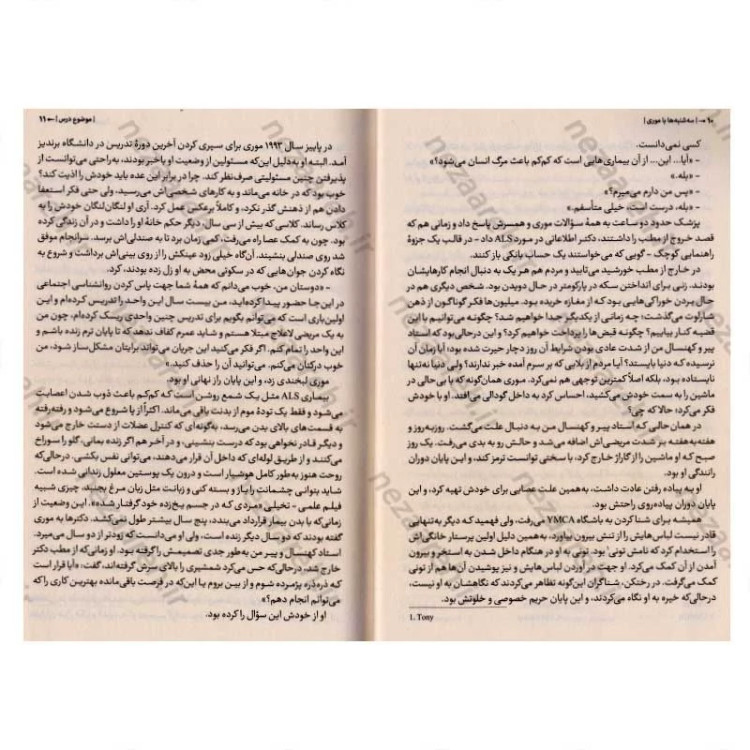 ۱۰ → | سه‌شنبه‌ها با موری |
کسی نمی‌دانست.
- «آیا... این... از آن بیماری‌هایی است که کم‌کم باعث مرگ انسان می‌شود؟»
- «بله.»
- «پس من دارم می‌میرم؟»
- «بله، درست است، خیلی متأسفم.»
پزشک حدود دو ساعت به همهٔ سؤالات موری و همسرش پاسخ داد و زمانی هم که
قصد خروج از مطب را داشتند، دکتر اطلاعاتی در مورد ALS داد - در قالب یک جزوهٔ
راهنمایی کوچک - گویی که می‌خواستند یک حساب بانکی باز کنند.
در خارج از مطب خورشید می‌تابید و مردم هم هر یک به دنبال انجام کارهایشان
بودند. زنی برای انداختن سکه در پارکومتر در حال دویدن بود. شخص دیگری هم در
حال بردن خوراکی‌هایی بود که از مغازه خریده بود. میلیون‌ها فکر گوناگون از ذهن
شارلوت می‌گذشت؛ چه زمانی از یکدیگر جدا خواهیم شد؟ چگونه می‌توانیم با این
قضیه کنار بیاییم؟ چگونه قبض‌ها را پرداخت خواهیم کرد؟ و این درحالی بود که استاد
پیر و کهنسال من از شدت عادی بودن شرایط آن روز دچار حیرت شده بود، آیا زمان آن
نرسیده که دنیا بایستد؟ آیا مردم از بلایی که بر سرم آمده خبر ندارند؟ ولی دنیا نه‌تنها
نایستاده بود، بلکه اصلاً کمترین توجهی هم نمی‌کرد. موری همان‌گونه که با بی‌حالی در
ماشین را به سمت خودش می‌کشید، احساس کرد به داخل گودالی می‌افتد. او با خودش
فکر می‌کرد؛ حالا که چی؟
در همان حالی که استاد پیر و کهنسال من به دنبال علت می‌گشت. روزبه‌روز و
هفته‌به‌هفته بر شدت مریضی‌اش اضافه می‌شد و حالش رو به بدی می‌رفت. یک روز
صبح که او ماشین را از گاراژ خارج کرد، با سختی توانست ترمز کند، و این پایان دوران
رانندگی او بود.
او به پیاده رفتن عادت داشت، به‌همین علت عصایی برای خودش تهیه کرد، و این
پایان دوران پیاده‌روی راحتش بود.
همیشه برای شنا کردن به باشگاه YMCA می‌رفت، ولی فهمید که دیگر به‌تنهایی
قادر نیست لباس‌هایش را از تنش بیرون بیاورد، به‌همین دلیل اولین پرستار خانگی‌اش
را استخدام کرد که نامش تونی¹ بود. تونی به او در هنگام داخل شدن به استخر و بیرون
آمدن از آن کمک می‌کرد. او جهت در آوردن لباس‌هایش و نیز پوشیدن آن‌ها هم از تونی
کمک می‌گرفت. در رختکن، شناگران این‌گونه تظاهر می‌کردند که نگاهشان به او نیست،
درحالی‌که خیره به او نگاه می‌کردند، و این پایان حریم خصوصی و خلوتش بود.
1. Tony
| موضوع درس | ← ۱۱
در پاییز سال ۱۹۹۳ موری برای سپری کردن آخرین دورهٔ تدریس در دانشگاه برندیز
آمد. البته او به‌دلیل این‌که مسئولین از وضعیت او باخبر بودند، به‌راحتی می‌توانست از
پذیرفتن چنین مسئولیتی صرف‌نظر کند. چرا در برابر این عده باید خودش را اذیت کند؟
خوب بود که در خانه می‌ماند و به کارهای شخصی‌اش می‌رسید، ولی حتی فکر استعفا
دادن هم از ذهنش گذر نکرد، و کاملاً برعکس عمل کرد. آری او لنگان‌لنگان خودش را به
کلاس رساند. کلاسی که بیش از سی سال، دیگر حکم خانهٔ او را داشت و در آن زندگی کرده
بود. چون به کمک عصا راه می‌رفت، کمی زمان برد تا به صندلی‌اش برسد. سرانجام موفق
شد روی صندلی بنشیند. آن‌گاه خیلی زود عینکش را از روی بینی‌اش برداشت و شروع به
نگاه کردن جوان‌هایی که در سکوتی محض به او زل زده بودند، کرد.
- «دوستان من، خوب می‌دانم که همهٔ شما جهت پاس کردن روانشناسی اجتماعی
در این‌جا حضور پیدا کرده‌اید، من بیست سال این واحد را تدریس کرده‌ام و این
اولین‌باری است که می‌توانم بگویم برای تدریس چنین واحدی ریسک کرده‌ام، چون من
به یک مریضی لاعلاج مبتلا هستم و شاید عمرم کفاف ندهد که تا پایان ترم زنده باشم و
این واحد را تمام کنم. اگر فکر می‌کنید این جریان می‌تواند برایتان مشکل‌ساز شود، من
خوب درکتان می‌کنم، می‌توانید آن را حذف کنید.»
موری لبخندی زد، و این پایان راز نهانی او بود.
بیماری ALS مثل یک شمع روشن است که کم‌کم باعث ذوب شدن اعصابت
می‌شود و فقط یک تودهٔ موم از بدنت باقی می‌ماند. اکثراً از پا شروع می‌شود و رفته‌رفته
به قسمت‌های بالای بدن می‌رسد، به‌گونه‌ای که کنترل عضلات از دستت خارج می‌شود
و دیگر قادر نخواهی بود که درست بنشینی، و در آخر هم اگر زنده بمانی، گلو را سوراخ
می‌کنند و از طریق لوله‌ای که داخل آن قرار می‌دهند، می‌توانی نفس بکشی. درحالی‌که
روحت هنوز به‌طور کامل هوشیار است و درون یک پوستین معلول زندانی شده است.
شاید بتوانی چشمانت را باز و بسته کنی و زبانت مثل زبان مرغ بجنبد. چیزی شبیه
فیلم علمی - تخیلی «مردی که در جسم یخ‌زده خود گرفتار شده». این وضعیت از
زمانی‌که با بدن بیمار قرارداد می‌بندد، پنج سال بیشتر طول نمی‌کشد. دکترها به موری
گفته بودند که دو سال دیگر زنده است، ولی او می‌دانست که زودتر از دو سال می‌میرد.
استاد کهنسال و پیر من به‌طور جدی تصمیمش را گرفته بود. او زمانی‌که از مطب دکتر
خارج شد، درحالی‌که حس می‌کرد شمشیری را بالای سرش گرفته‌اند، گفت: «آیا قرار است
که ذره‌ذره پژمرده شوم و از بین بروم یا این‌که در فرصت باقی‌مانده بهترین کاری را که
می‌توانم انجام دهم؟»
او از خودش این سؤال را کرده بود.